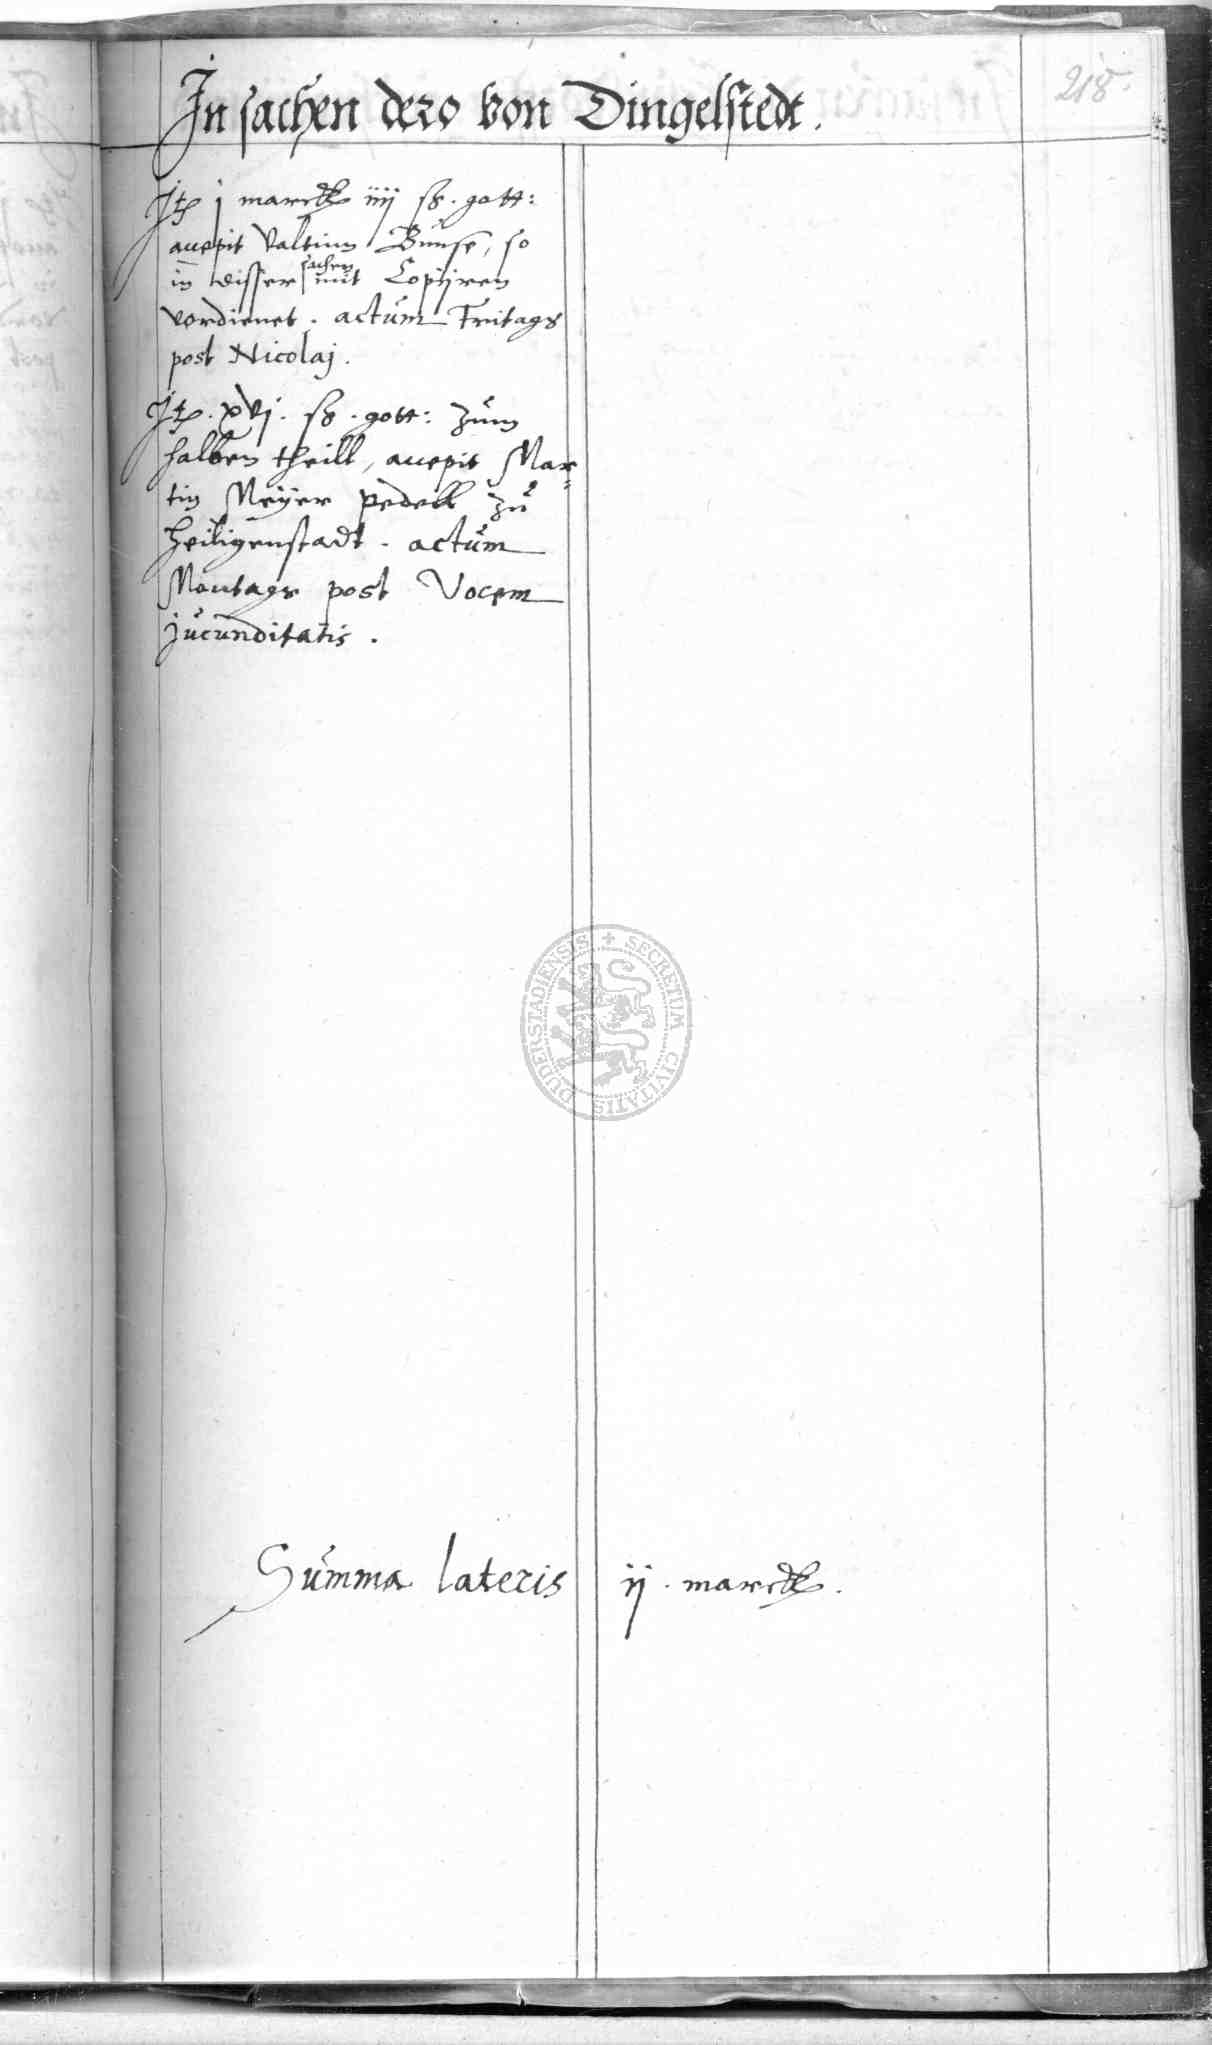 218.
In sachen dero von Dingelstedt.
Itē j marck iiij ß. gott:
accepit Valtinn Bunse, so
in disser sachen mit Copijren
vordienet. actum Fritags
post Nicolaj.
Itē. xvj. ß. gott: zum
halben theill, accepit Mar=
tin Meijer pedell zu
Heiligenstadt. actum
Montags post Vocem
jucunditatis.
SECRETUM CIVITATIS DUDERSTADIENSIS
Summa lateris ij. marck.